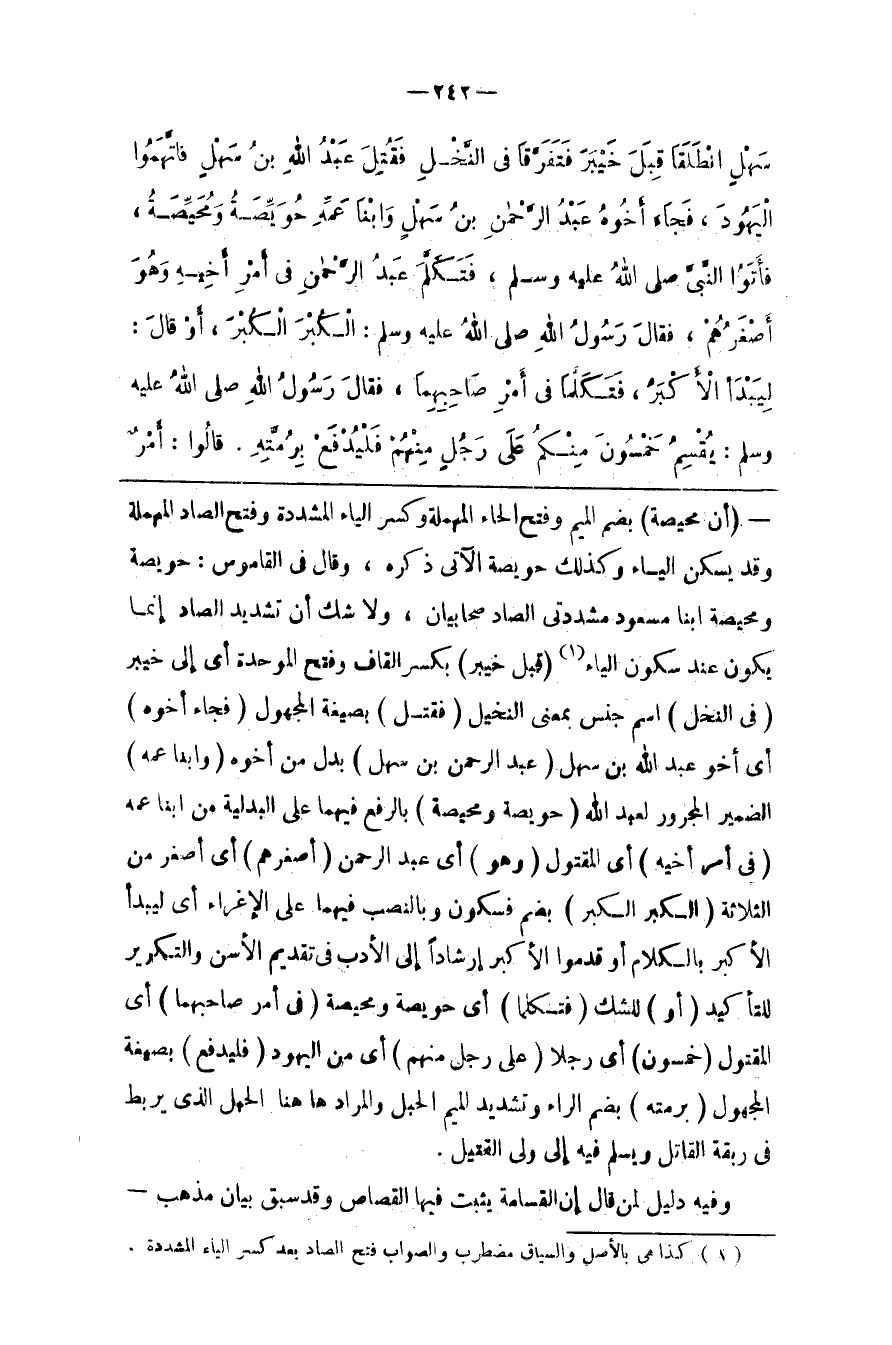 —٢٤٢—
سَهْلٍ انْطَلَقَا قِبَلَ خَيْبَرَ فَتَفَرَّقَا فى النَّخْـلِ فَقُتِلَ عَبْدُ اللهِ بنُ سَهْلٍ فاتَّهَمُوا
الْيَهُودَ ، فَجَاءَ أَخُوهُ عَبْدُ الرَّحْمٰنِ بنُ سَهْلٍ وَابْنَا عَمِّهِ حُوَيِّصَـةُ وَمُحَيِّصَـةُ ،
فأَتَوُا النَّبِىَّ صلى اللهُ عليه وسـلم ، فَتَـكَلَّمَ عَبدُ الرَّحْمٰنِ فى أَمْرِ أَخِيـهِ وَهُوَ
أَصْغَرُهُمْ ، فقالَ رَسُولُ اللهِ صلى اللهُ عليه وسلم : الْـكُبْرَ الْـكُبْرَ ، أَوْ قالَ :
لِيَبْدَأ الْأَكْبَرُ ، فَتَـكَلَّمَا فى أَمْرِ صَاحِبِهِما ، فقالَ رَسُولُ اللهِ صلى اللهُ عليه
وسلم : يُقْسِمُ خَمْسُونَ مِنْـكُمْ عَلَى رَجُلٍ مِنْهُمْ فَلْيُدْفَعْ بِرُمَّتِهِ . قالُوا : أَمْرٌ
— (أن محيصة) بضم الميم وفتح الحاء المهملة وكسر الياء المشددة وفتح الصاد المهملة
وقد يسكن اليـاء وكذلك حويصة الآتى ذكره ، وقال فى القاموس : حويصة
ومحيصة ابنا مسعود مشددتى الصاد صحابيان ، ولا شك أن تشديد الصاد إنمـا
يكون عند سكون الياء(١) (قبل خيبر) بكسر القاف وفتح الموحدة أى إلى خيبر
( فى النخل ) اسم جنس بمعنى النخيل ( فقتـل ) بصيغة المجهول ( فجاء أخوه )
أى أخو عبد الله بن سهل ( عبد الرحمن بن سهل ) بدل من أخوه ( وابنا عمه )
الضمير المجرور لعبد الله ( حويصة ومحيصة ) بالرفع فيهما على البدلية من ابنا عمه
( فى أمر أخيه ) أى المقتول ( وهو ) أى عبد الرحمن ( أصغرهم ) أى أصغر من
الثلاثة ( الـكبر الـكبر ) بضم فسكون وبالنصب فيهما على الإغراء أى ليبدأ
الأكبر بالـكلام أو قدموا الأكبر إرشاداً إلى الأدب فى تقديم الأسن والتـكرير
للتأكيد ( أو ) للشك ( فتـكلما ) أى حويصة ومحيصة ( فى أمر صاحبهما ) أى
المقتول (خمسون) أى رجلا ( على رجل منهم ) أى من اليهود ( فليدفع ) بصيغة
المجهول ( برمته ) بضم الراء وتشديد الميم الحبل والمراد ها هنا الحبل الذى يربط
فى ربقة القاتل ويسلم فيه إلى ولى القتيل .
وفيه دليل لمن قال إن القسامة يثبت فيها القصاص وقد سبق بيان مذهب —
( ١ ) كذا هى بالأصل والسياق مضطرب والصواب فتح الصاد بعد كسر الياء المشددة .